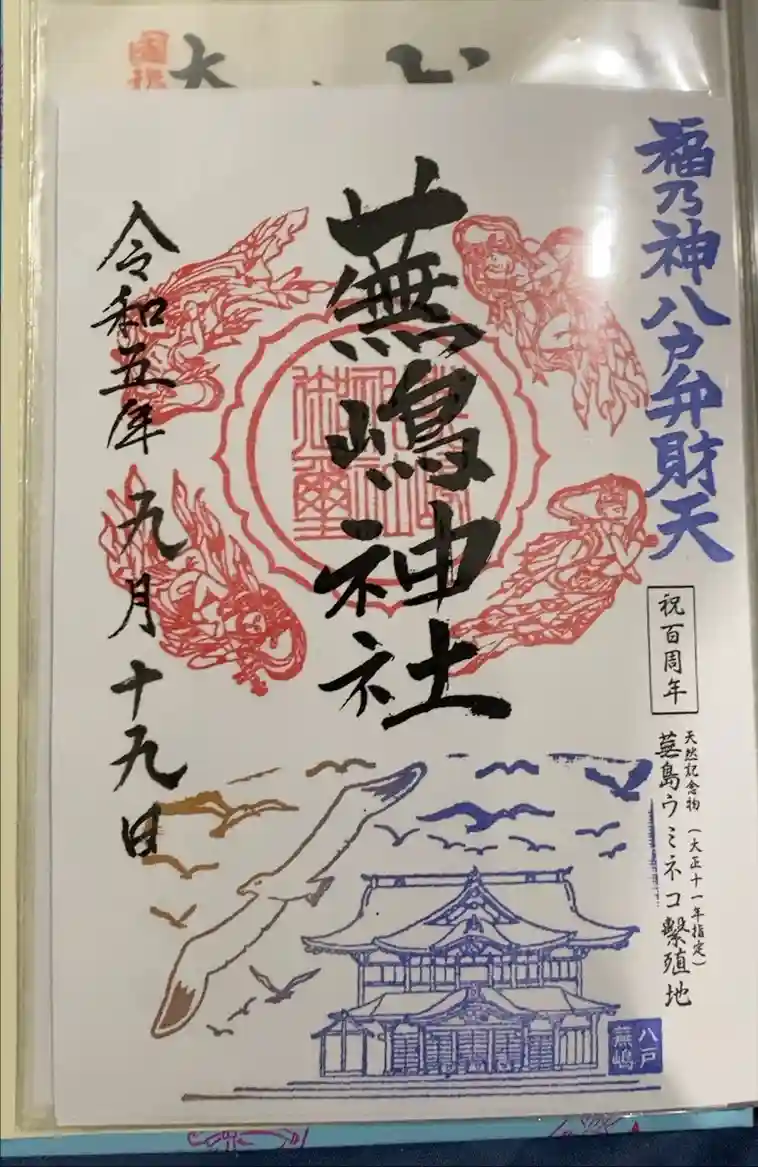 福乃神八戸弁財天
祝百周年
天然記念物（大正十一年指定）
蕪島ウミネコ繫殖地
蕪嶋神社
令和五年九月十九日
八戸
蕪嶋
大